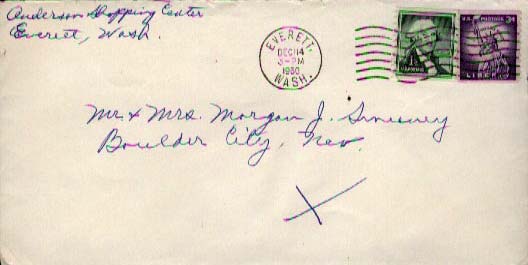 Anderson Shopping Center
Everett, Wash.
EVERETT,
DEC 14
3-PM
1960
WASH.
U.S. POSTAGE 3¢
LIBERTY
Mr. & Mrs. Morgan J. Sweeney
Boulder City, Nev.
X